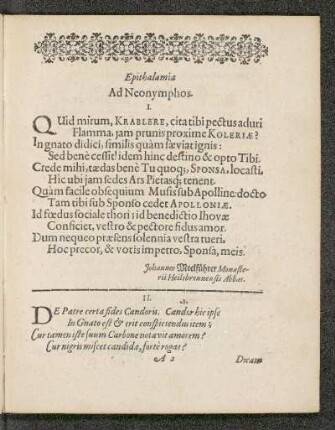 Epithalamia
Ad Neonymphos.
I.
QUid mirum, KRABLERE, cita tibi pectus aduri
Flamma, jam prunis proxime KOLERIÆ?
In gnato didici, similis quàm sæviat ignis:
Sed benè cessit! idem hinc destino & opto Tibi.
Crede mihi, tædas benè Tu quoq;, SPONSA, locasti.
Hic ubi jam sedes Ars Pietasq; tenent.
Quàm facile obsequium Musis sub Apolline docto
Tam tibi sub Sponso cedet APOLLONIÆ.
Id fœdus sociale thori; id benedictio Ihovæ
Conficiet, vestro & pectore fidus amor.
Dum nequeo præsens solennia vestra tueri.
Hoc precor, & votis impetro, Sponsa, meis.
Johannes Mehlführer Monaste-
rii Heilsbronnensis Abbas.
II.
DE Patre certa fides Candoris. Candor hic ipse
In Gnato est & erit conspiciendus item;
Cur tamen iste suum Carbone notavit amorem?
Cur nigris miscet candida, fortè rogas?
A 2
Dicam